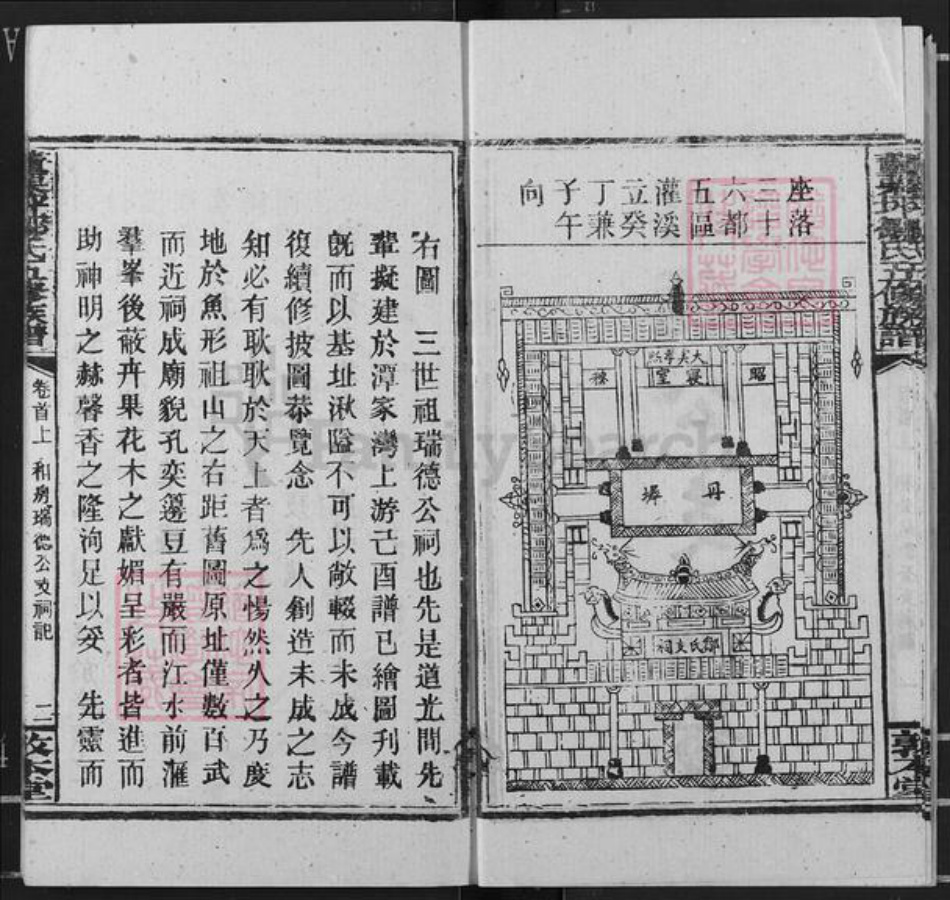 座落
三十
六都
五區
灌溪
立癸
丁兼
子午
向
昭
寢室
穆
丹墀
鄧氏支祠
右圖　三世祖瑞德公祠也先是道光間先
輩擬建於潭家灣上游己酉譜已繪圖刊載
旣而以基址湫隘不可以敞輟而未成今譜
復續修披圖恭覽念　先人創造未成之志
知必有耿耿於天上者爲之惕然久之乃度
地於魚形祖山之右距舊圖原址僅數百武
而近祠成廟貌孔奕籩豆有嚴而江水前滙
羣峯後蔽卉果花木之獻媚呈彩者皆進而
助神明之赫馨香之隆洵足以妥　先靈而
卷首上　和房瑞德公支祠記　二
敦本堂
FamilySearch